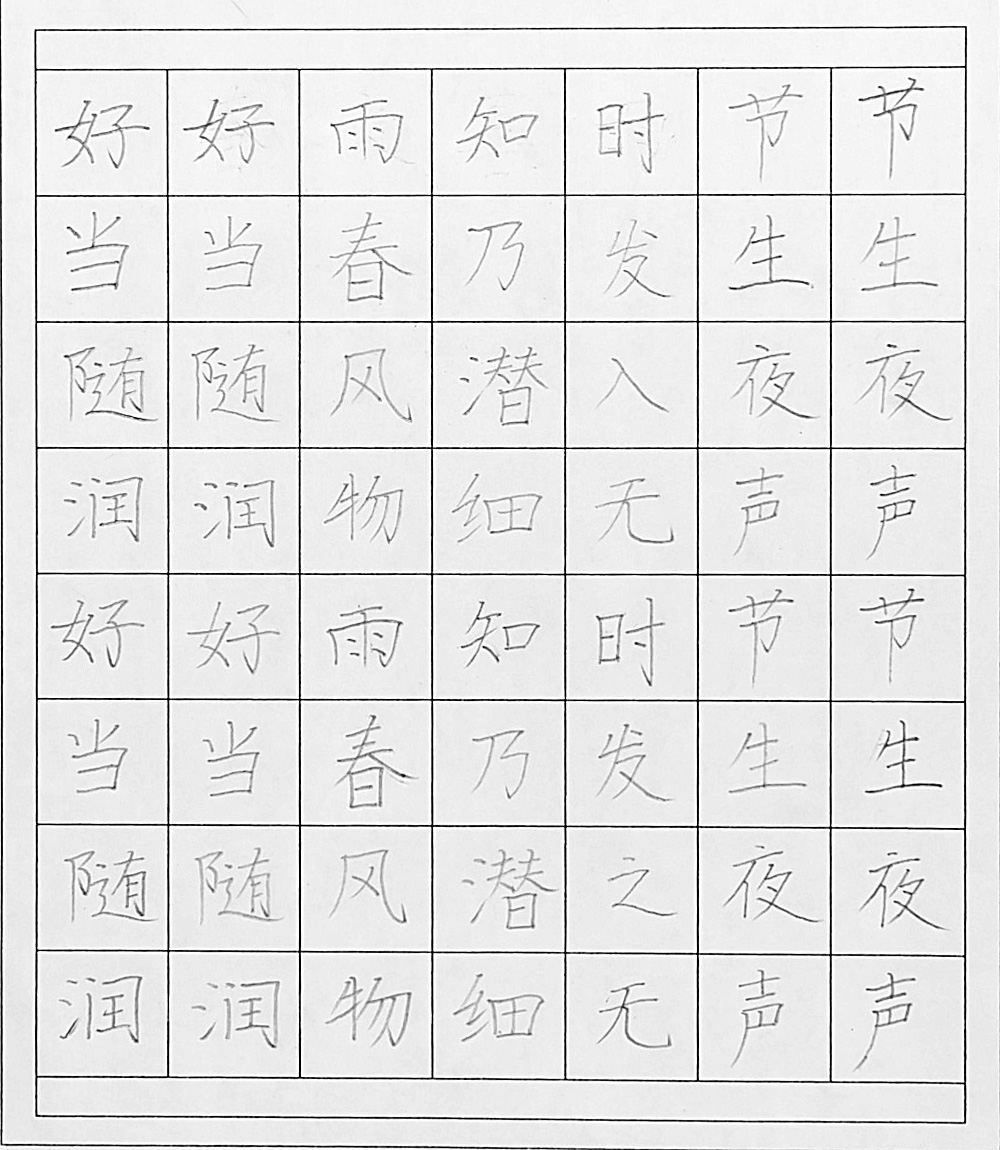 好好雨知时节节
当当春乃发生生
随随风潜入夜夜
润润物细无声声
好好雨知时节节
当当春乃发生生
随随风潜之夜夜
润润物细无声声